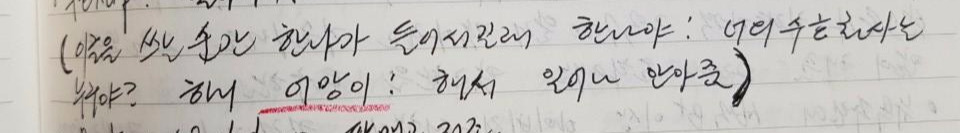 (이글을 쓰는 순간 한나가 들어서길래 한나야: 너의 수호천사는
누구야? 하니 어망이: 해서 일어나 안아줌)